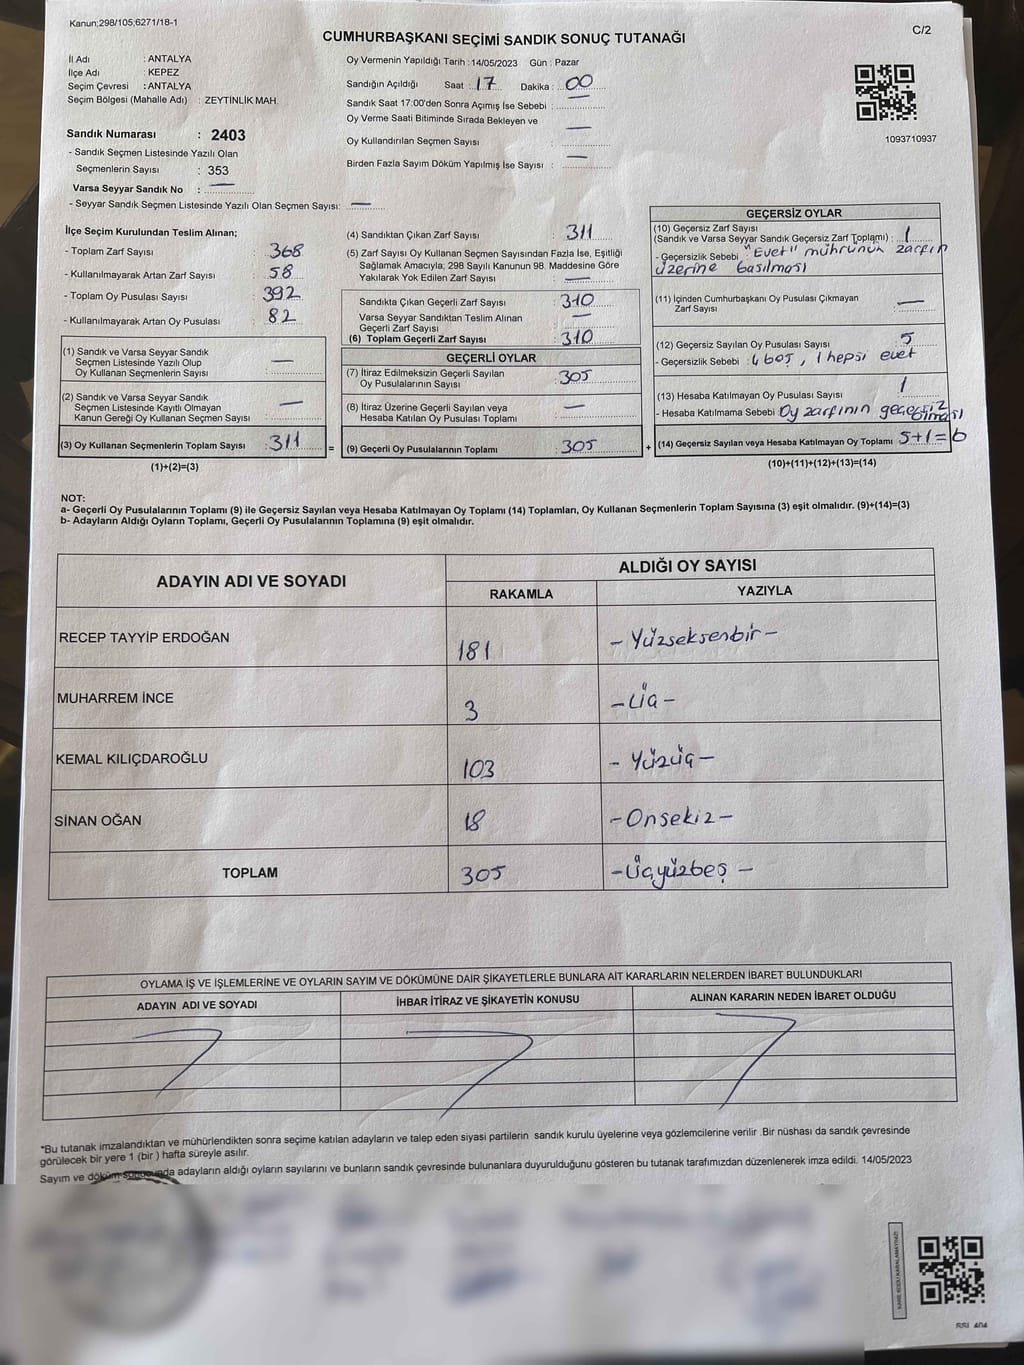 Kanun;298/105;6271/18-1
C/2
CUMHURBAŞKANI SEÇİMİ SANDIK SONUÇ TUTANAĞI
İl Adı : ANTALYA
İlçe Adı : KEPEZ
Seçim Çevresi : ANTALYA
Seçim Bölgesi (Mahalle Adı) : ZEYTİNLİK MAH.
Sandık Numarası : 2403
- Sandık Seçmen Listesinde Yazılı Olan
Seçmenlerin Sayısı : 353
Varsa Seyyar Sandık No : —
- Seyyar Sandık Seçmen Listesinde Yazılı Olan Seçmen Sayısı: —
Oy Vermenin Yapıldığı Tarih : 14/05/2023 Gün : Pazar
Sandığın Açıldığı Saat : 17 Dakika : 00
Sandık Saat 17:00'den Sonra Açımış İse Sebebi : —
Oy Verme Saati Bitiminde Sırada Bekleyen ve
Oy Kullandırılan Seçmen Sayısı : —
Birden Fazla Sayım Döküm Yapılmış İse Sayısı : —
1093710937
İlçe Seçim Kurulundan Teslim Alınan;
- Toplam Zarf Sayısı : 368
- Kullanılmayarak Artan Zarf Sayısı : 58
- Toplam Oy Pusulası Sayısı : 392
- Kullanılmayarak Artan Oy Pusulası : 82
(1) Sandık ve Varsa Seyyar Sandık
Seçmen Listesinde Yazılı Olup
Oy Kullanan Seçmenlerin Sayısı —
(2) Sandık ve Varsa Seyyar Sandık
Seçmen Listesinde Kayıtlı Olmayan
Kanun Gereği Oy Kullanan Seçmen Sayısı —
(3) Oy Kullanan Seçmenlerin Toplam Sayısı : 311 =
(1)+(2)=(3)
(4) Sandıktan Çıkan Zarf Sayısı : 311
(5) Zarf Sayısı Oy Kullanan Seçmen Sayısından Fazla İse, Eşitliği
Sağlamak Amacıyla; 298 Sayılı Kanunun 98. Maddesine Göre
Yakılarak Yok Edilen Zarf Sayısı : —
Sandıkta Çıkan Geçerli Zarf Sayısı : 310
Varsa Seyyar Sandıktan Teslim Alınan
Geçerli Zarf Sayısı : —
(6) Toplam Geçerli Zarf Sayısı : 310
GEÇERLİ OYLAR
(7) İtiraz Edilmeksizin Geçerli Sayılan
Oy Pusulalarının Sayısı : 305
(8) İtiraz Üzerine Geçerli Sayılan veya
Hesaba Katılan Oy Pusulası Toplamı : —
(9) Geçerli Oy Pusulalarının Toplamı : 305 +
GEÇERSİZ OYLAR
(10) Geçersiz Zarf Sayısı
(Sandık ve Varsa Seyyar Sandık Geçersiz Zarf Toplamı) : 1
- Geçersizlik Sebebi "Evet" mührünün zarfın
üzerine basılması
(11) İçinden Cumhurbaşkanı Oy Pusulası Çıkmayan
Zarf Sayısı : —
(12) Geçersiz Sayılan Oy Pusulası Sayısı : 5
- Geçersizlik Sebebi : 4 boş, 1 hepsi evet
(13) Hesaba Katılmayan Oy Pusulası Sayısı : 1
- Hesaba Katılmama Sebebi Oy zarfının geçersiz
olması
(14) Geçersiz Sayılan veya Hesaba Katılmayan Oy Toplamı 5+1=6
(10)+(11)+(12)+(13)=(14)
NOT:
a- Geçerli Oy Pusulalarının Toplamı (9) ile Geçersiz Sayılan veya Hesaba Katılmayan Oy Toplamı (14) Toplamları, Oy Kullanan Seçmenlerin Toplam Sayısına (3) eşit olmalıdır. (9)+(14)=(3)
b- Adayların Aldığı Oyların Toplamı, Geçerli Oy Pusulalarının Toplamına (9) eşit olmalıdır.
ADAYIN ADI VE SOYADI ALDIĞI OY SAYISI
RAKAMLA YAZIYLA
RECEP TAYYİP ERDOĞAN 181 - Yüzseksenbir -
MUHARREM İNCE 3 - Üç -
KEMAL KILIÇDAROĞLU 103 - Yüzüç -
SİNAN OĞAN 18 - Onsekiz -
TOPLAM 305 - Üçyüzbeş -
OYLAMA İŞ VE İŞLEMLERİNE VE OYLARIN SAYIM VE DÖKÜMÜNE DAİR ŞİKAYETLERLE BUNLARA AİT KARARLARIN NELERDEN İBARET BULUNDUKLARI
ADAYIN ADI VE SOYADI İHBAR İTİRAZ VE ŞİKAYETİN KONUSU ALINAN KARARIN NEDEN İBARET OLDUĞU
*Bu tutanak imzalandıktan ve mühürlendikten sonra seçime katılan adayların ve talep eden siyasi partilerin sandık kurulu üyelerine veya gözlemcilerine verilir .Bir nüshası da sandık çevresinde
görülecek bir yere 1 (bir ) hafta süreyle asılır.
Sayım ve döküm sonucunda adayların aldığı oyların sayılarını ve bunların sandık çevresinde bulunanlara duyurulduğunu gösteren bu tutanak tarafımızdan düzenlenerek imza edildi. 14/05/2023